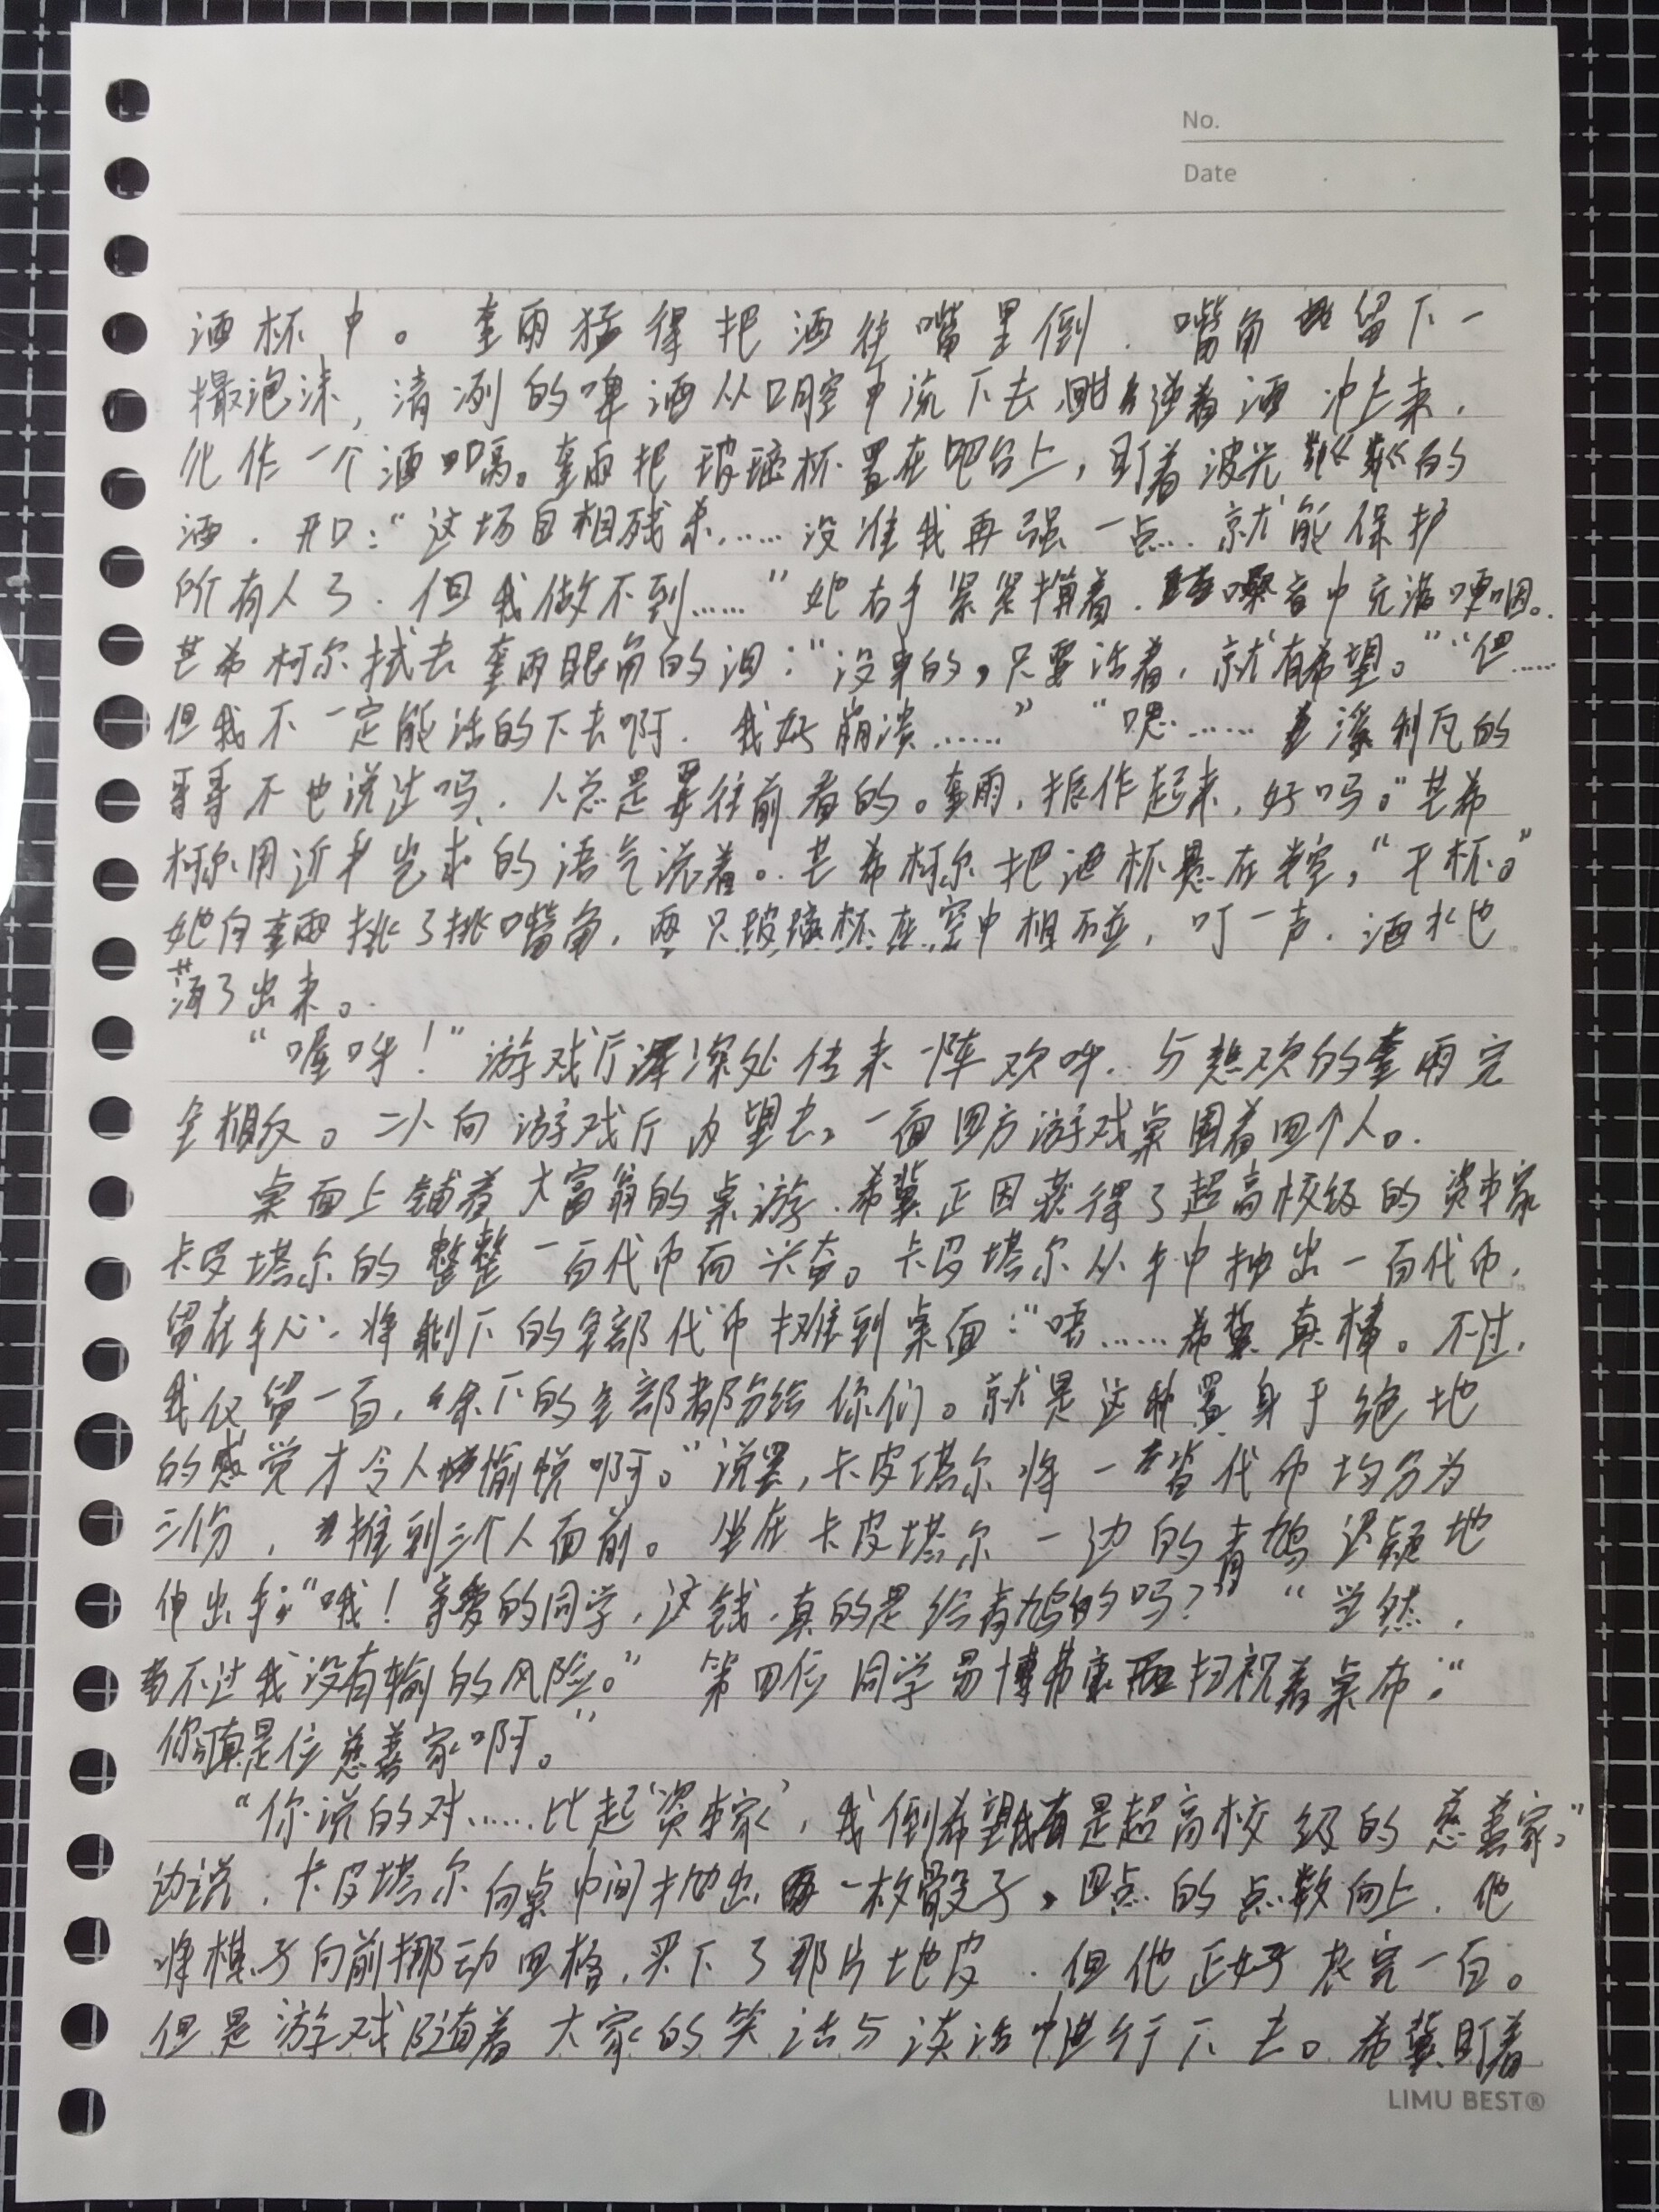 No.
Date
酒杯中。奎雨猛得把酒往嘴里倒.嘴角留下一
撮泡沫,清冽的啤酒从口腔中流下去,逆着酒冲上来,
化作一个酒嗝。奎雨把玻璃杯置在吧台上,盯着波光粼粼的
酒.开口:“这场自相残杀……没准我再强一点…就能保护
所有人了.但我做不到……”她右手紧紧攥着.嗓音中充满哽咽。
芒希柯尔拭去奎雨眼角的泪:“没事的,只要活着,就有希望。”“但……
但我不一定能活的下去啊.我好崩溃……”“嗯……利瓦的
哥哥不也说过吗,人总是要往前看的。奎雨,振作起来,好吗。”芒希
柯尔用近乎乞求的语气说着。芒希柯尔把酒杯悬在半空,“干杯。”
她向奎雨挑了挑嘴角,两只玻璃杯在空中相碰,叮一声.酒水也
荡了出来。
“喔呼!”游戏厅深处传来一阵欢呼.与悲欢的奎雨完
全相反。二人向游戏厅内望去,一面四方游戏桌围着四个人。
桌面上铺着大富翁的桌游.希冀正因获得了超高校级的资本家
卡皮塔尔的整整一百代币而兴奋。卡皮塔尔从手中抽出一百代币,
留在手心.将剩下的全部代币摊到桌面:“唔……希冀真棒。不过,
我仅留一百,余下的全部都分给你们。就是这种置身于绝地
的感觉才令人愉悦啊。”说罢,卡皮塔尔将一沓代币均分为
三份,推到三个人面前。坐在卡皮塔尔一边的青鸠迟疑地
伸出手:“哦!亲爱的同学,这钱,真的是给青鸠的吗?”“当然,
不过我没有输的风险。”第四位同学易博弗東扫视着桌布:“
你真是位慈善家啊。”
“你说的对……比起‘资本家’,我倒希望我是超高校级的慈善家。”
边说,卡皮塔尔向桌中间抛出一枚骰子,四点的点数向上.他
将棋子向前挪动四格,买下了那片地皮.但他正好花完一百。
但是游戏随着大家的笑话与谈话中进行下去。希冀盯着
LIMU BEST®